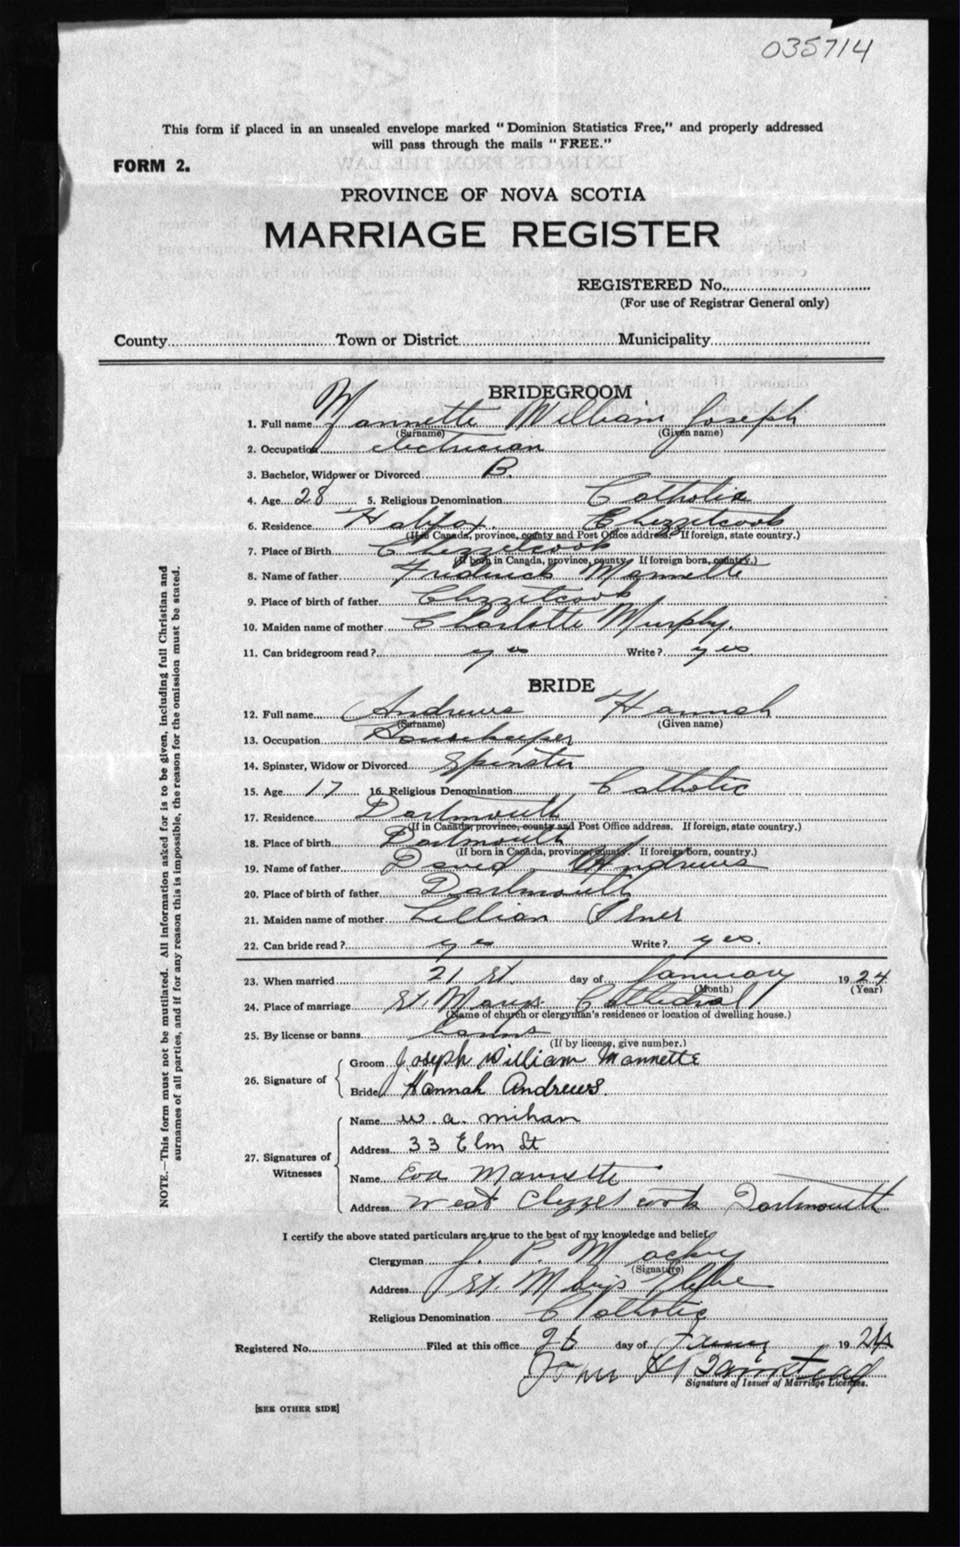 035714
This form if placed in an unsealed envelope marked "Dominion Statistics Free," and properly addressed
will pass through the mails "FREE."
FORM 2.
PROVINCE OF NOVA SCOTIA
MARRIAGE REGISTER
REGISTERED No.
(For use of Registrar General only)
County Town or District Municipality
BRIDEGROOM
1. Full name Mannette William Joseph
(Surname) (Given name)
2. Occupation electrician
3. Bachelor, Widower or Divorced B.
4. Age 28 5. Religious Denomination Catholic
6. Residence Halifax. Chezzetcook
(If in Canada, province, county and Post Office address. If foreign, state country.)
7. Place of Birth Chezzetcook
(If born in Canada, province, county. If foreign born, country.)
8. Name of father Frederick Mannette
9. Place of birth of father Chezzetcook
10. Maiden name of mother Charlotte Murphy.
11. Can bridegroom read? yes Write? yes
BRIDE
12. Full name Andrews Hannah
(Surname) (Given name)
13. Occupation Housekeeper
14. Spinster, Widow or Divorced Spinster
15. Age 17 16. Religious Denomination Catholic
17. Residence Dartmouth
(If in Canada, province, county and Post Office address. If foreign, state country.)
18. Place of birth Dartmouth
(If born in Canada, province, county. If foreign born, country.)
19. Name of father David Andrews
20. Place of birth of father Dartmouth
21. Maiden name of mother Lillian
22. Can bride read? yes Write? yes.
23. When married 21 st. day of January 1924
(Month) (Year)
24. Place of marriage St. Marys Cathedral
(Name of church or clergyman's residence or location of dwelling house.)
25. By license or banns banns
(If by license, give number.)
26. Signature of
Groom Joseph William Mannette
Bride Hannah Andrews.
27. Signatures of Witnesses
Name W. A. Mihan
Address 33 Elm St
Name Eva Mannette
Address West Chezzetcook Dartmouth
I certify the above stated particulars are true to the best of my knowledge and belief.
Clergyman J. P. Mackey
(Signature)
Address St. Mary's Glebe
Religious Denomination Catholic
Registered No. Filed at this office 26 day of 1924
Signature of Issuer of Marriage Licenses.
[SEE OTHER SIDE]
NOTE.—This form must not be mutilated. All information asked for is to be given, including full Christian and
surnames of all parties, and if for any reason this is impossible, the reason for the omission must be stated.